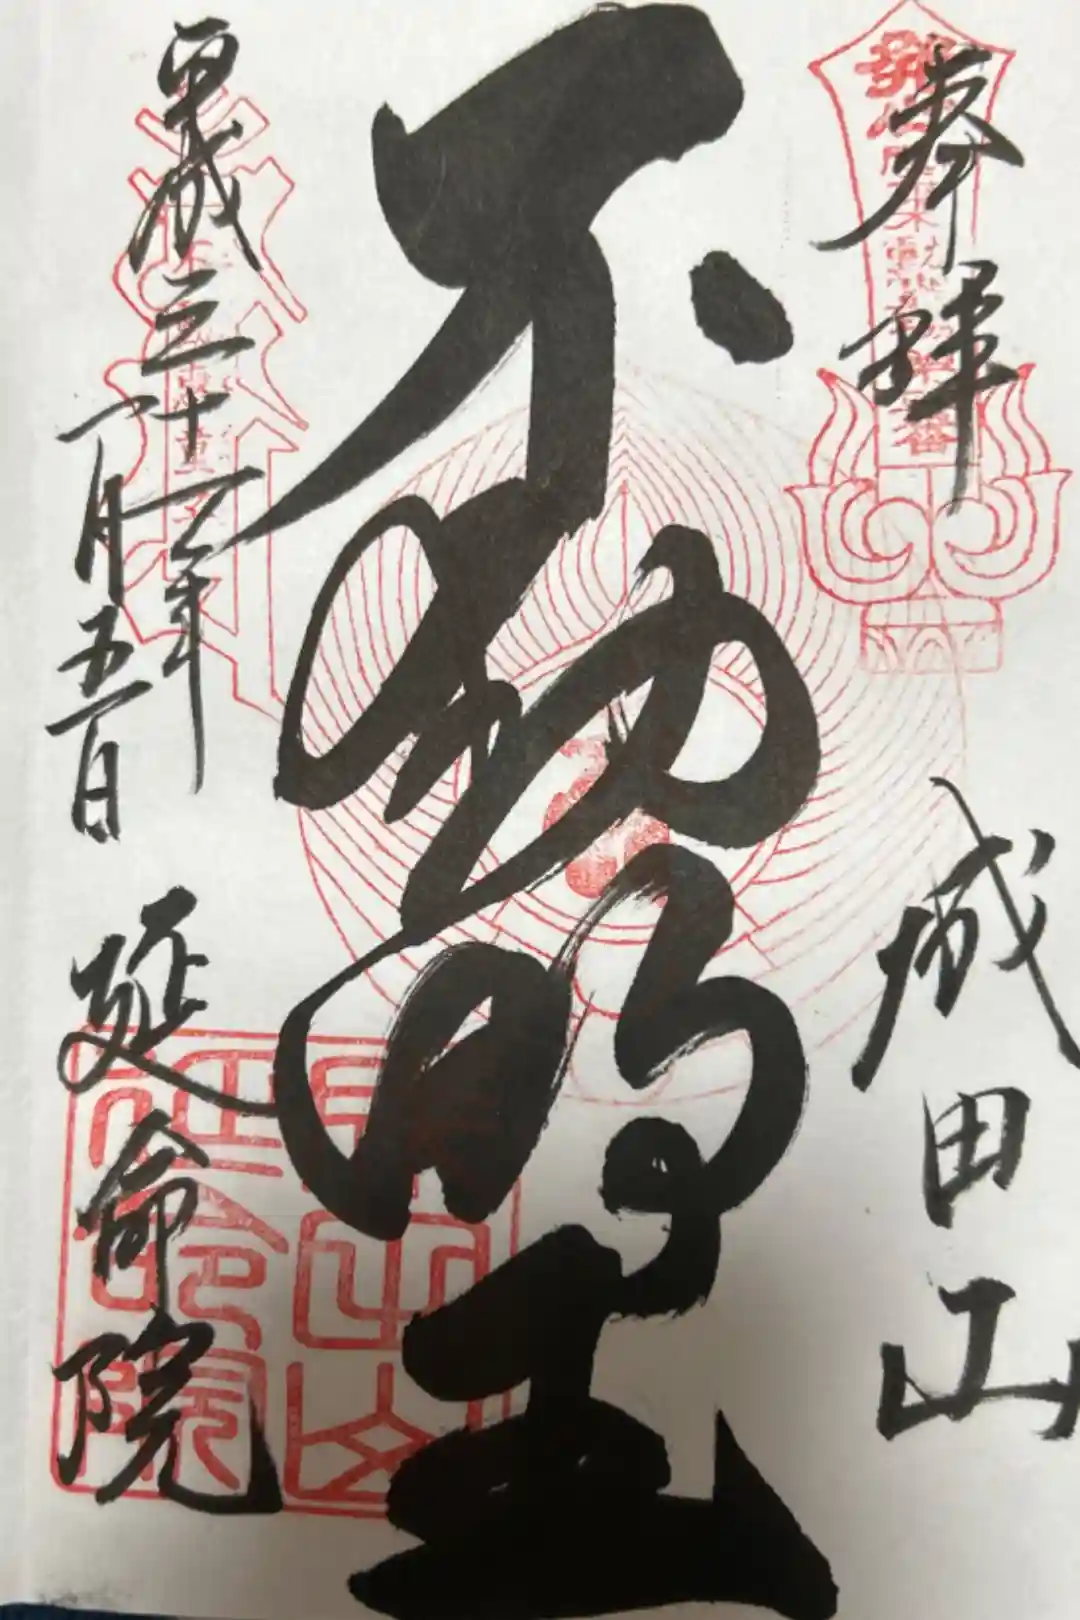 奉拝
成田山
不動明王
平成三十一年
一月五日
延命院